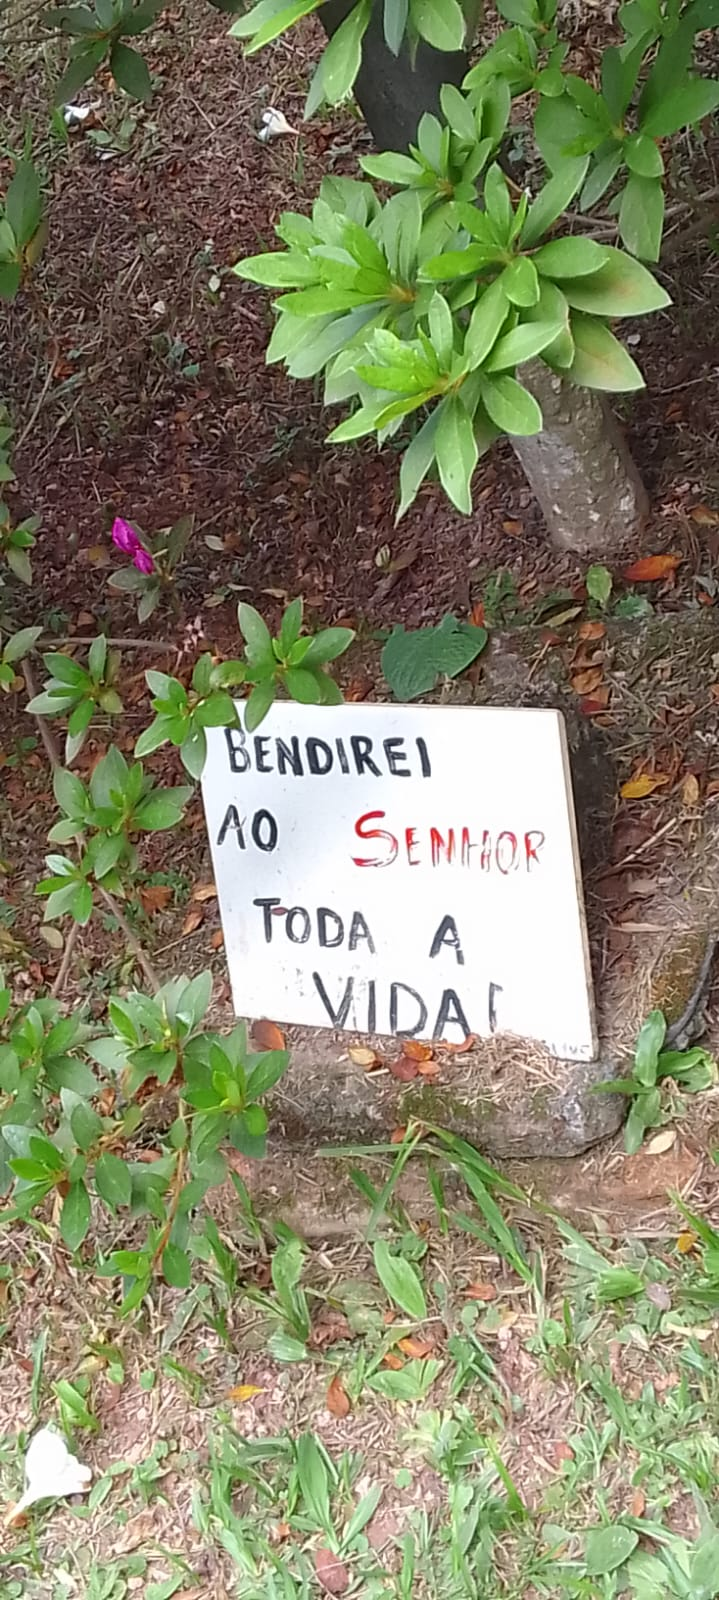 BENDIREI
AO SENHOR
TODA A
VIDA!